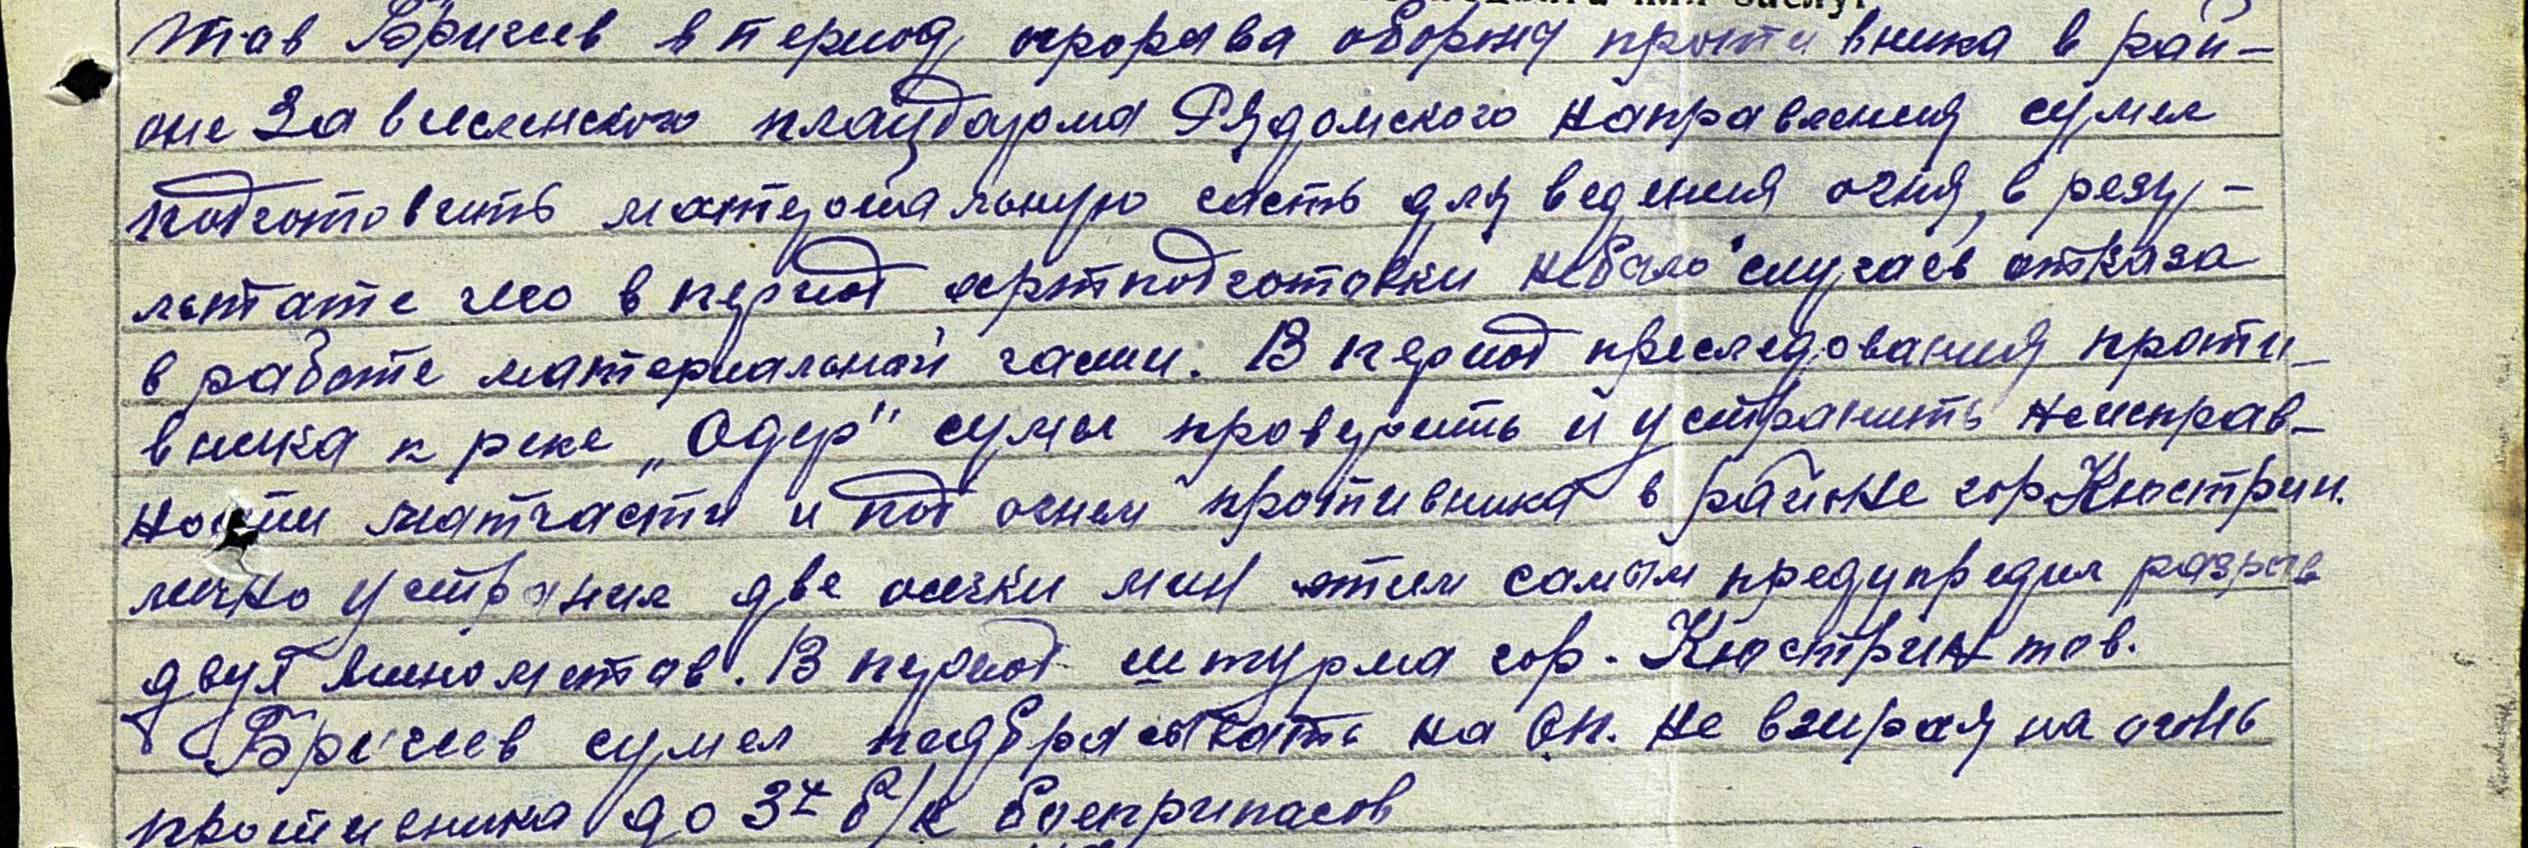 Тов Бричев в период прорыва обороны противника в рай-
оне Завислинского плацдарма Рядомского направления сумел
подготовить материальную часть для ведения огня, в резу-
льтате чего в период артподготовки небыло случаев отказа
в работе материальной части. В период преследования проти-
вника к реке „Одер" сумел проверить и устранить неисправ-
ности матчасти и под огнем противника в районе гор Кюстрин.
лично устранил две осечки мин этим самым предупредил разрыв
двух минометов. В период штурма гор. Кюстрин тов.
Бричев сумел подбрасывать на оп. не взирая на огонь
противника до 3х б/к боеприпасов